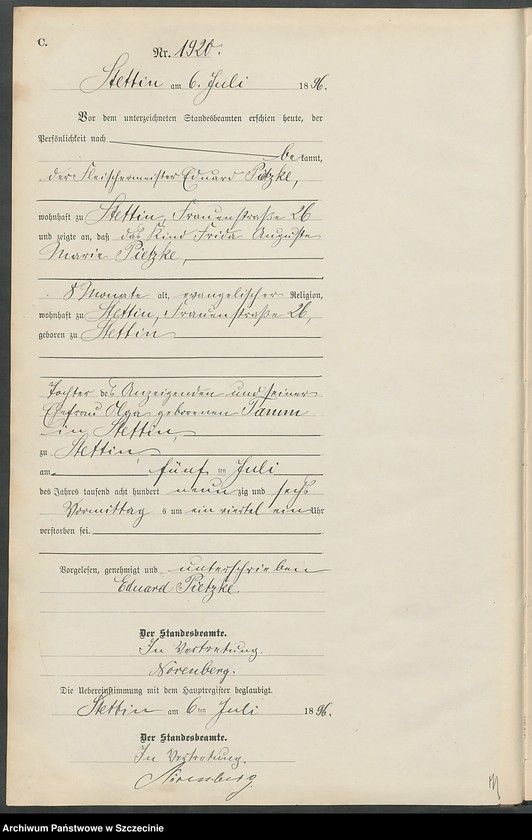 C.
Nr. 1920.
Stettin am 6. Juli 1896.
Vor dem unterzeichneten Standesbeamten erschien heute, der
Persönlichkeit nach
bekannt,
der Fleischermeister Eduard Pietzke,
wohnhaft zu Stettin, Frauenstraße 26
und zeigte an, daß das Kind Frida Auguste
Marie Pietzke,
8 Monate alt, evangelischer Religion,
wohnhaft zu Stettin, Frauenstraße 26,
geboren zu Stettin
Tochter des Anzeigenden und seiner
Ehefrau Olga geborenen Tamm
in Stettin,
zu Stettin
am fünf ten Juli
des Jahres tausend acht hundert neun zig und sechs
Vormittags um ein viertel ein Uhr
verstorben sei.
Vorgelesen, genehmigt und unterschrieben
Eduard Pietzke.
Der Standesbeamte.
In Vertretung.
Nörenberg.
Die Uebereinstimmung mit dem Hauptregister beglaubigt.
Stettin am 6ten Juli 1896.
Der Standesbeamte.
In Vertretung.
Nörenberg.
Archiwum Państwowe w Szczecinie